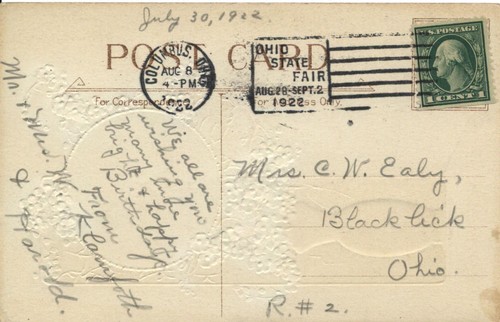 July 30, 1922.
POST CARD
COLUMBUS, OHIO
AUG 8
4-PM
1922
OHIO
STATE
FAIR
AUG.28-SEPT.2
1922
U.S. POSTAGE
1 CENT 1
For Correspondence
Only.
We all are
wishing you
many more
bright & happy
Birthdays.
From
Mr. & Mrs. W. Klamfoth
& Harold.
Mrs. C. W. Ealy,
Blacklick
Ohio.
R. # 2.